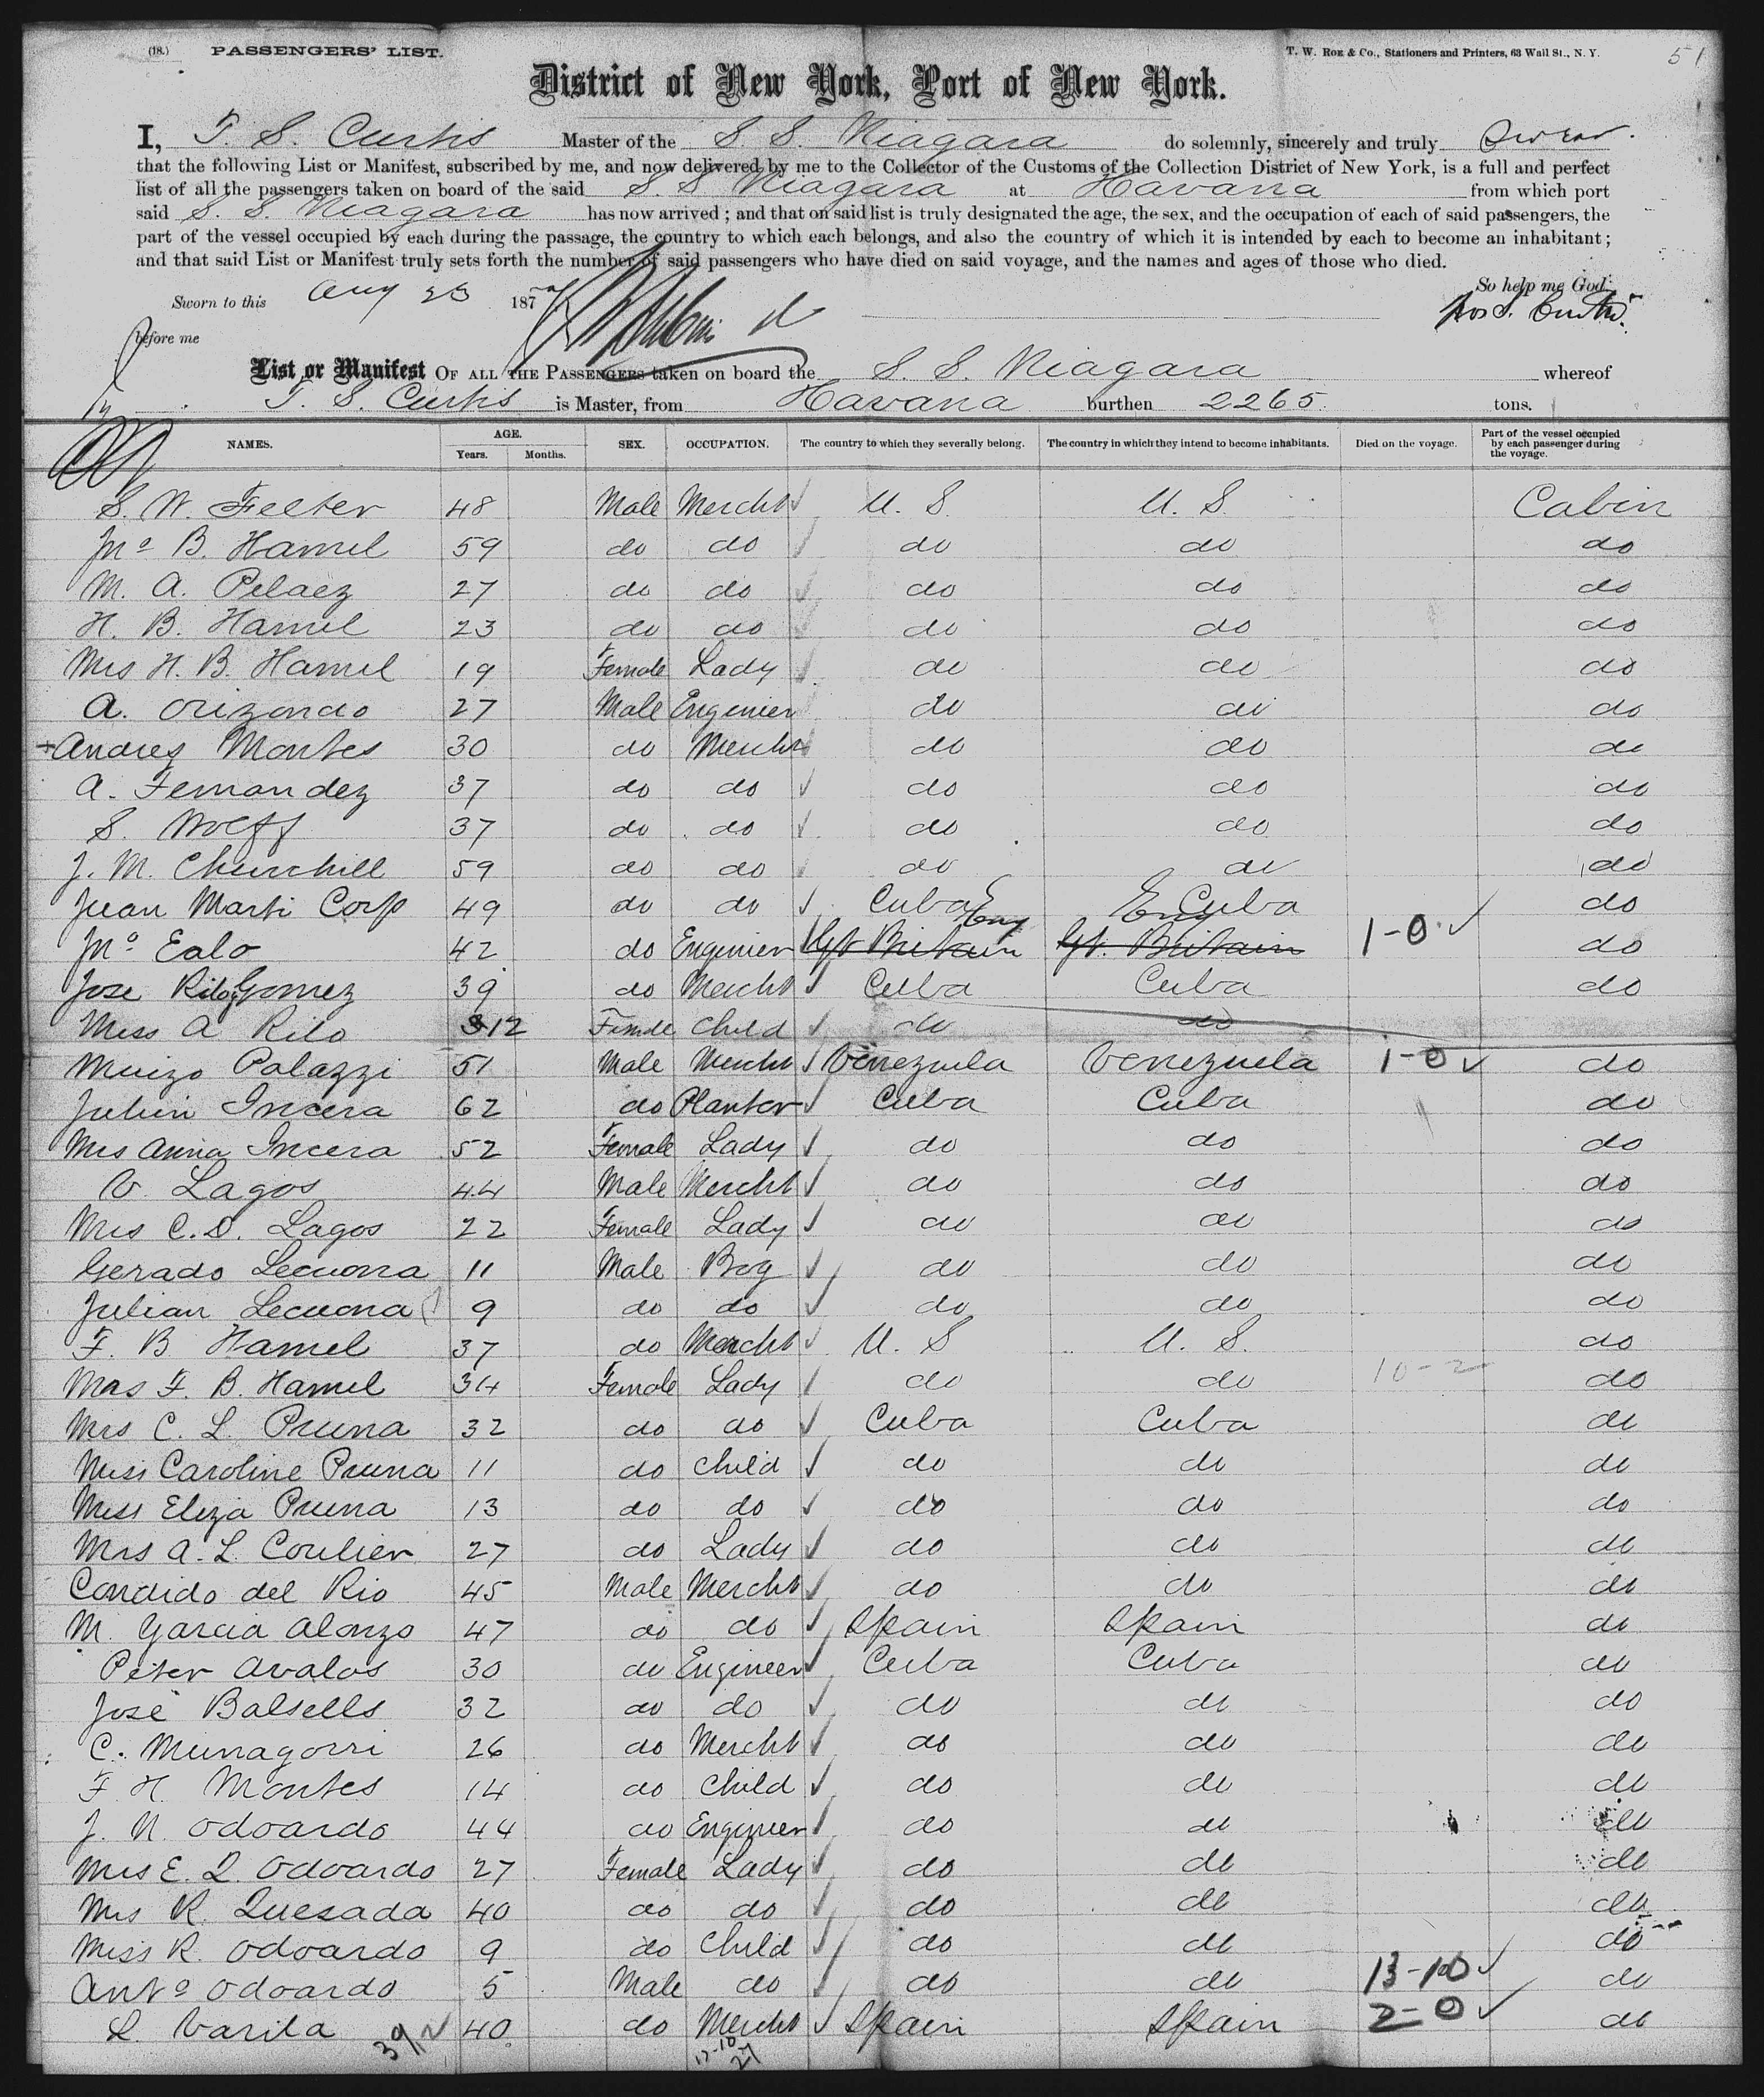 (18.) PASSENGERS' LIST. T. W. Roe & Co., Stationers and Printers, 63 Wall St., N. Y. 51
District of New York, Port of New York.
I, T. S. Curtis Master of the S. S. Niagara do solemnly, sincerely and truly Swear.
that the following List or Manifest, subscribed by me, and now delivered by me to the Collector of the Customs of the Collection District of New York, is a full and perfect
list of all the passengers taken on board of the said S. S Niagara at Havana from which port
said S. S. Niagara has now arrived; and that on said list is truly designated the age, the sex, and the occupation of each of said passengers, the
part of the vessel occupied by each during the passage, the country to which each belongs, and also the country of which it is intended by each to become an inhabitant;
and that said List or Manifest truly sets forth the number of said passengers who have died on said voyage, and the names and ages of those who died.
So help me God.
Sworn to this Aug 23 187
before me
List or Manifest OF ALL THE PASSENGERS taken on board the S. S. Niagara whereof
T. S. Curtis is Master, from Havana burthen 2265 tons.
NAMES. AGE. Years. Months. SEX. OCCUPATION. The country to which they severally belong. The country in which they intend to become inhabitants. Died on the voyage. Part of the vessel occupied by each passenger during the voyage.
S. W. Felter 48 Male Mercht U. S U. S. Cabin
Jno B. Hamel 59 do do do do do
M. A. Pelaez 27 do do do do do
H. B. Hamel 23 do do do do do
Mrs H. B. Hamel 19 Female Lady do do do
A. Orizondo 27 Male Enginier do do do
+Andres Montes 30 do Mercht do do do
A. Fernandez 37 do do do do do
S. Wolff 37 do do do do do
J. M. Churchill 59 do do do do do
Juan Marti Corp 49 do do Cuba Cuba do
Jno Ealo 42 do Enginier Gt Britain Eng Gt. Britain Eng 1-0 do
Jose Rilo Gomez 39 do Mercht Cuba Cuba do
Miss A Rilo 12 Female Child do do
Muizo Palazzi 51 Male Mercht Venezuela Venezuela 1-0 do
Julien Incera 62 do Planter Cuba Cuba do
Mrs Anna Incera 52 Female Lady do do do
V. Lagos 44 Male Mercht do do do
Mrs C. D. Lagos 22 Female Lady do do do
Gerado Lecuona 11 Male Boy do do do
Julian Lecuona 9 do do do do do
F. B Hamel 37 do Mercht U. S U. S. do
Mrs F. B. Hamel 34 Female Lady do do 10-2 do
Mrs C. L. Pruna 32 do do Cuba Cuba do
Miss Caroline Pruna 11 do Child do do do
Miss Eliza Pruna 13 do do do do do
Mrs A. L. Coulier 27 do Lady do do do
Candido del Rio 45 Male Mercht do do do
M. Garcia Alonzo 47 do do Spain Spain do
Peter Avalos 30 do Engineer Cuba Cuba do
José Balsells 32 do do do do do
C. Munagorri 26 do Mercht do do do
F. H. Montes 14 do Child do do do
J. N. Odoardo 44 do Enginier do do do
Mrs E. Q. Odoardo 27 Female Lady do do do
Mrs R. Quesada 40 do do do do do
Miss R. Odoardo 9 do Child do do do
Anto Odoardo 5 Male do do do 13-10 do
L. Varila 40 do Mercht Spain Spain 2-0 do
39 17-10
27